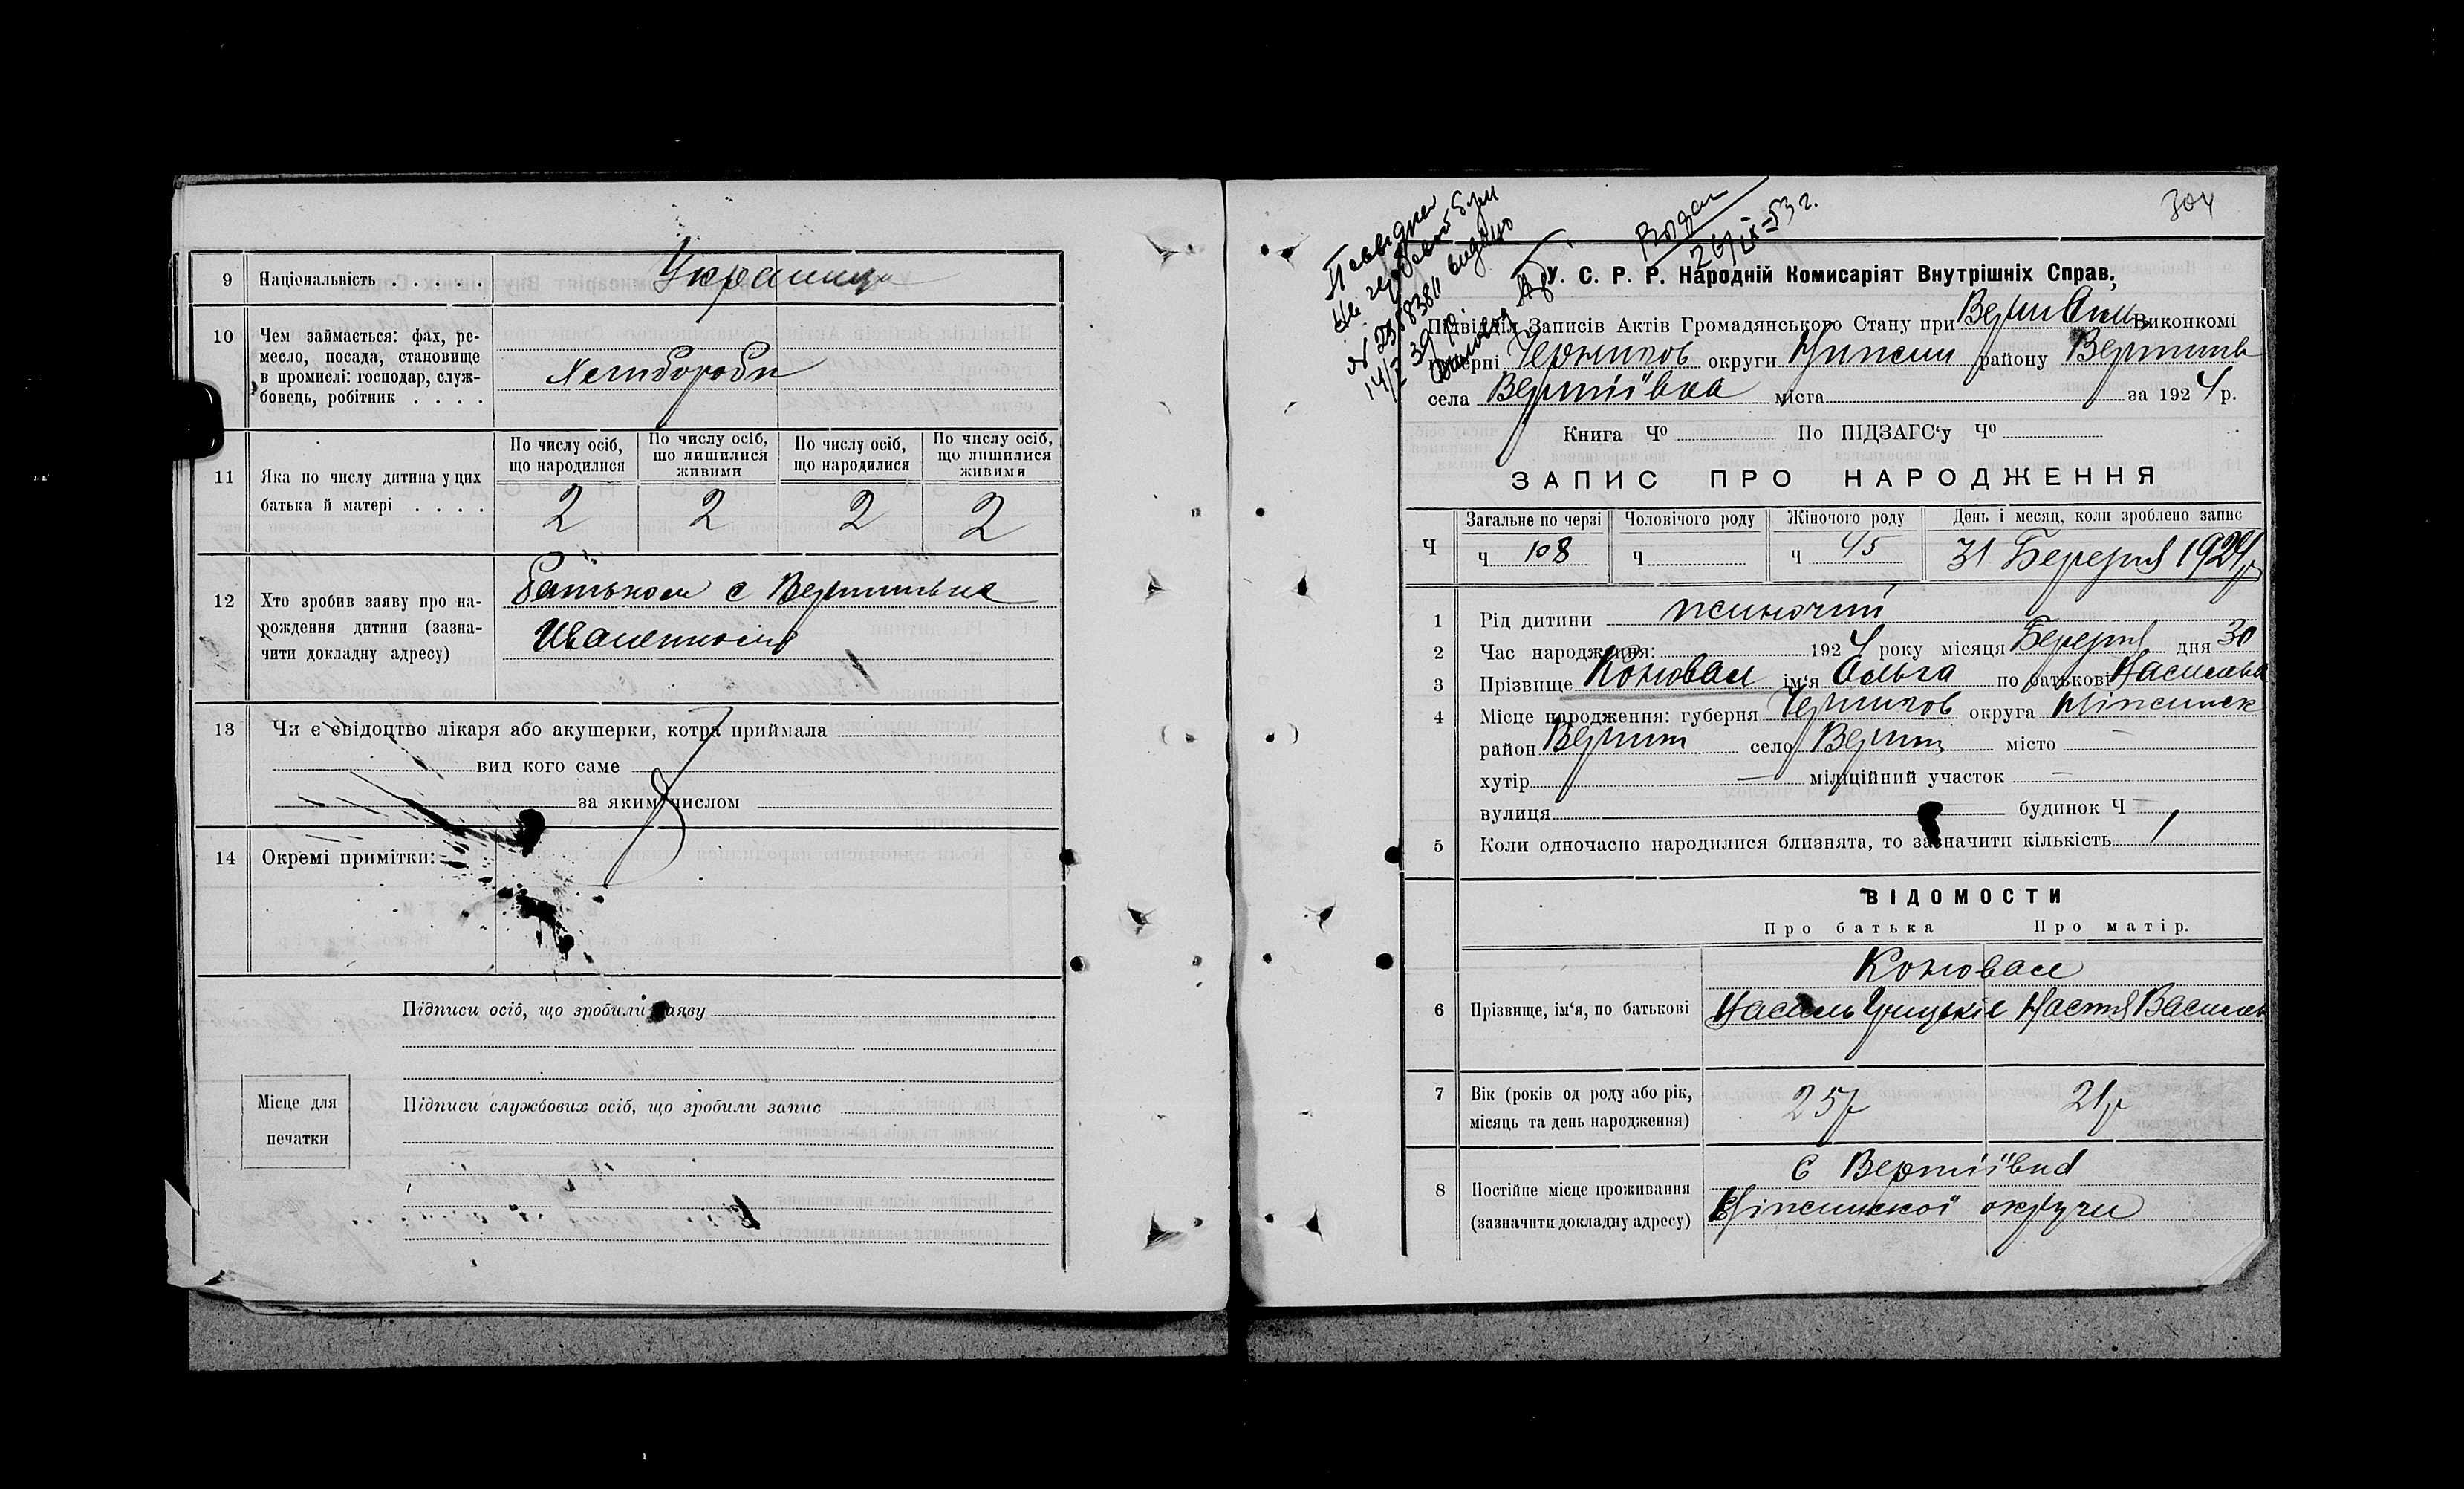 9 Національність . . . . . Украинци
10 Чем займається: фах, ре-
месло, посада, становище
в промислі: господар, служ-
бовець, робітник . . . .
Хлибороби
По числу осіб, що народилися
По числу осіб, що лишилися живими
По числу осіб, що народилися
По числу осіб, що лишилися живими
11 Яка по числу дитина у цих
батька й матері . . . .
2 2 2 2
12 Хто зробив заяву про на-
рождення дитини (зазна-
чити докладну адресу)
Батьком с
13 Чи є свідоцтво лікаря або акушерки, котра приймала
вид кого саме
за яким числом
14 Окремі примітки:
Підписи осіб, що зробили заяву
Місце для
печатки
Підписи службових осіб, що зробили запис
304
видано
У. С. Р. Р. Народній Комисаріят Внутрішніх Справ,
Підвідділ Записів Актів Громадянського Стану при Виконкомі
губерні Чернигов округи району
села Вертіївка міста за 1924 р.
Книга Ч⁰ По ПІДЗАГС‘у Ч⁰
ЗАПИС ПРО НАРОДЖЕННЯ
Ч
Загальне по черзі Чоловічого роду Жіночого роду День і месяц, коли зроблено запис
Ч 108 Ч Ч 45 31 Березня 1924 р
1 Рід дитини жиночий
2 Час народження: 1924 року місяця Березня дня 30
3 Прізвище Коновал ім‘я Ольга по батькові Василівна
4 Місце народження: губерня Чернигов округа Ніжинск
район Вертии село Вертии місто —
хутір — міліційний участок —
вулиця будинок Ч —
5 Коли одночасно народилися близнята, то зазначити кількість 1
ВІДОМОСТИ
Про батька Про матір.
Коновал
6 Прізвище, ім‘я, по батькові Василь Грицьків Настя Василів
7 Вік (років од роду або рік,
місяць та день народження)
25 р 21 р
8 Постійне місце проживання
(зазначити докладну адресу)
с Вертіівка
Ніжинськоі округи